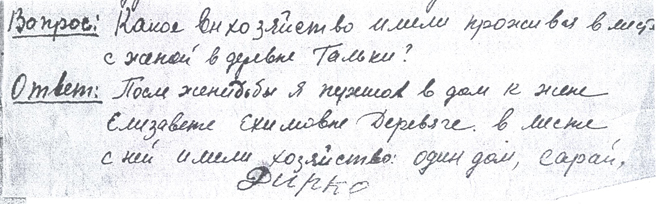 Вопрос: Какое Вы хозяйство имели проживая вместе
с женой в деревне Тальки?
Ответ: После женитьбы я пришол в дом к жене
Елизавете Екимовне Деревяге. вместе
с ней имели хозяйство: один дом, сарай,
Дирко